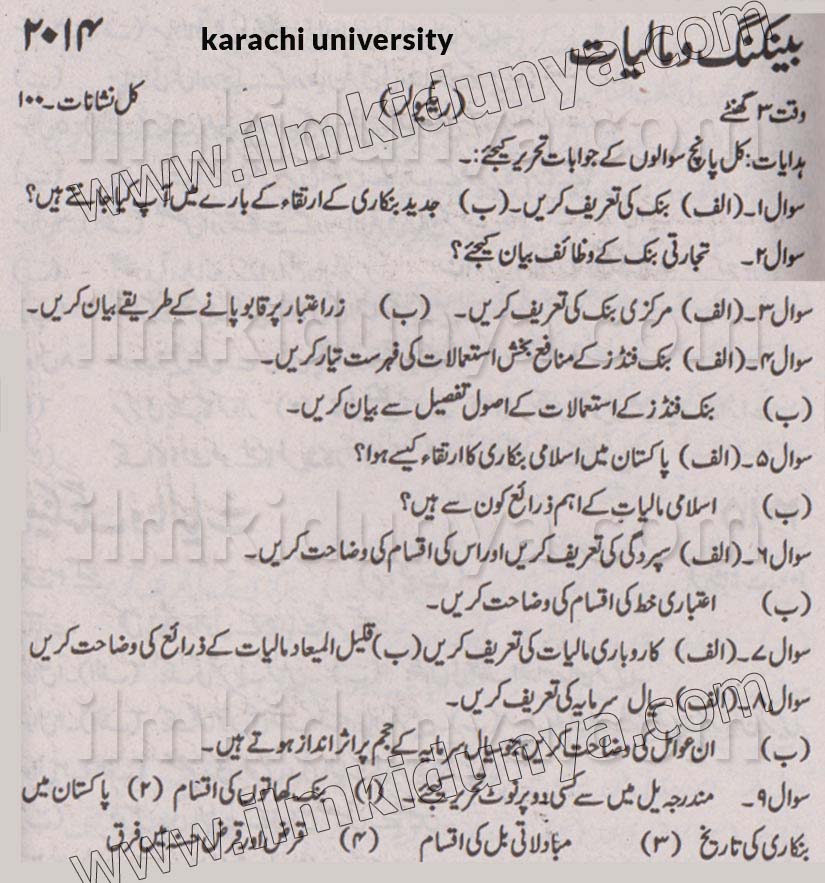 بینکنگ و مالیات karachi university ۲۰۱۴
وقت ۳ گھنٹے (ریگولر) کل نشانات۔ ۱۰۰
ہدایات: کل پانچ سوالوں کے جوابات تحریر کیجئے:۔
سوال ۱۔ (الف) بنک کی تعریف کریں۔ (ب) جدید بنکاری کے ارتقاء کے بارے میں آپ کیا جانتے ہیں؟
سوال ۲۔ تجارتی بنک کے وظائف بیان کیجئے؟
سوال ۳۔ (الف) مرکزی بنک کی تعریف کریں۔ (ب) زر اعتبار پر قابو پانے کے طریقے بیان کریں۔
سوال ۴۔ (الف) بنک فنڈز کے منافع بخش استعمالات کی فہرست تیار کریں۔
(ب) بنک فنڈز کے استعمالات کے اصول تفصیل سے بیان کریں۔
سوال ۵۔ (الف) پاکستان میں اسلامی بنکاری کا ارتقاء کیسے ہوا؟
(ب) اسلامی مالیات کے اہم ذرائع کون سے ہیں؟
سوال ۶۔ (الف) سپردگی کی تعریف کریں اور اس کی اقسام کی وضاحت کریں۔
(ب) اعتباری خط کی اقسام کی وضاحت کریں۔
سوال ۷۔ (الف) کاروباری مالیات کی تعریف کریں (ب) قلیل المیعاد مالیات کے ذرائع کی وضاحت کریں
سوال ۸۔ (الف) سیال سرمایہ کی تعریف کریں۔
(ب) ان عوامل کی وضاحت کریں جو سیال سرمایہ کے حجم پر اثر انداز ہوتے ہیں۔
سوال ۹۔ مندرجہ ذیل میں سے کسی دو پر نوٹ تحریر کیجئے۔ (۱) بنک کھاتوں کی اقسام (۲) پاکستان میں
بنکاری کی تاریخ (۳) مبادلاتی بل کی اقسام (۴) قرض اور قرض حسنہ میں فرق
www.ilmkidunya.com
ilmkidunya.com
ilmkidunya.com
ilmkidunya.com
ilmkidunya.com
www.ilmkidunya.com